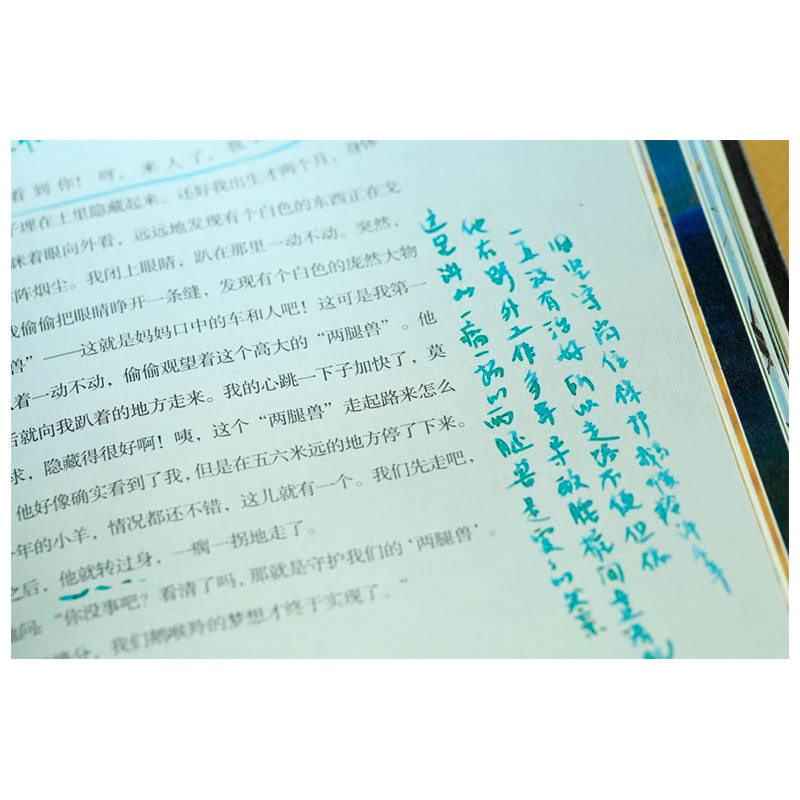 看到你！呀，来人了，我
子埋在土里隐藏起来。还好我出生才两个月，身体
眯着眼向外看，远远地发现有个白色的东西正在戈
阵烟尘。我闭上眼睛，趴在那里一动不动。突然，
我偷偷把眼睛睁开一条缝，发现有个白色的庞然大物
兽”——这就是妈妈口中的车和人吧！这可是我第一
着一动不动，偷偷观望着这个高大的“两腿兽”。他
后就向我趴着的地方走来。我的心跳一下子加快了，莫
求，隐藏得很好啊！咦，这个“两腿兽”走起路来怎么
他好像确实看到了我，但是在五六米远的地方停了下来。
年的小羊，情况都还不错，这儿就有一个。我们先走吧，
之后，他就转过身，一瘸一拐地走了。
地问：“你没事吧？看清了吗，那就是守护我们的‘两腿兽’。
我们鹅喉羚的梦想才终于实现了。”
这是讲的一瘸一拐的两腿兽是
他在野外工作多年导致腰椎间盘
一直没有治好所以走路不便但依
旧坚守岗位保护鹅喉羚